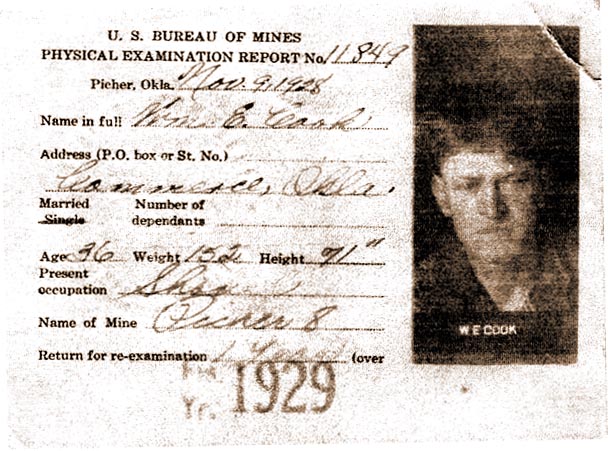 U. S. BUREAU OF MINES
PHYSICAL EXAMINATION REPORT No. 11849
Picher, Okla. Nov. 9, 1928
Name in full Wm. E. Cook
Address (P.O. box or St. No.)
Commerce, Okla.
Married Number of
Single dependants
Age 36 Weight 152 Height 71"
Present
occupation
Name of Mine
Return for re-examination 1 Year (over
Yr. 1929
W E COOK